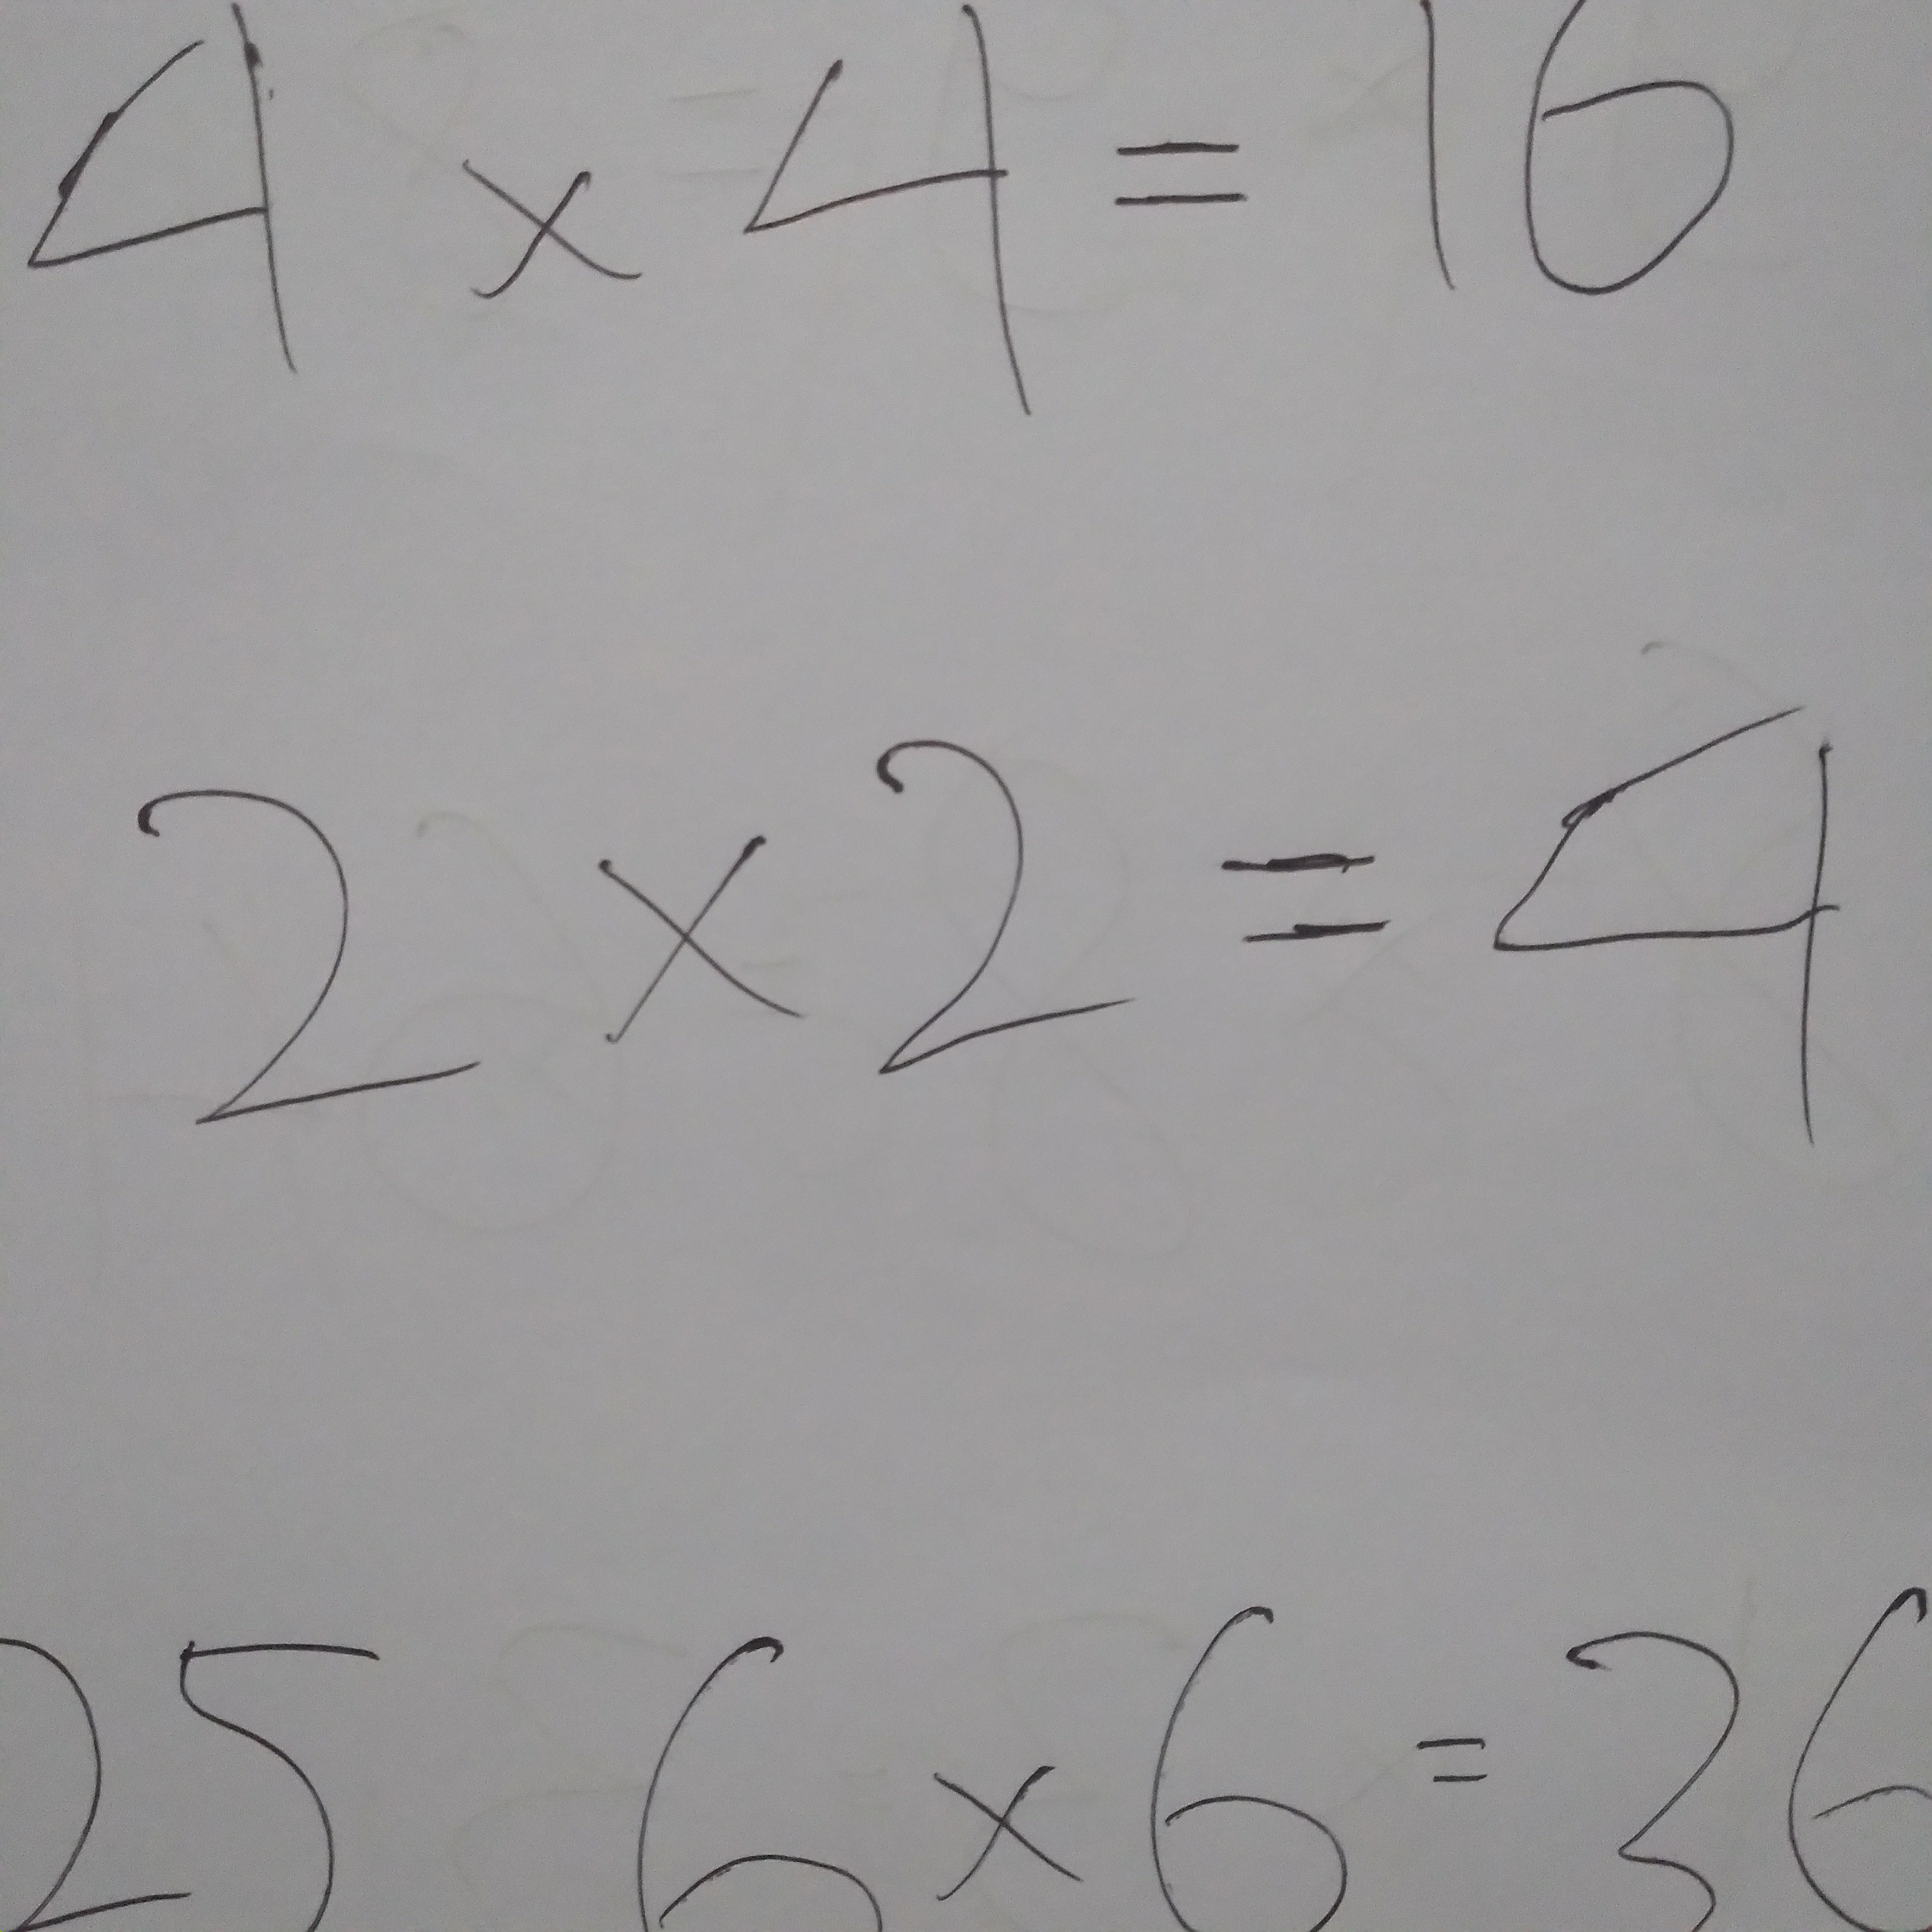 4 x 4 = 16
2 x 2 = 4
25 6 x 6 = 36